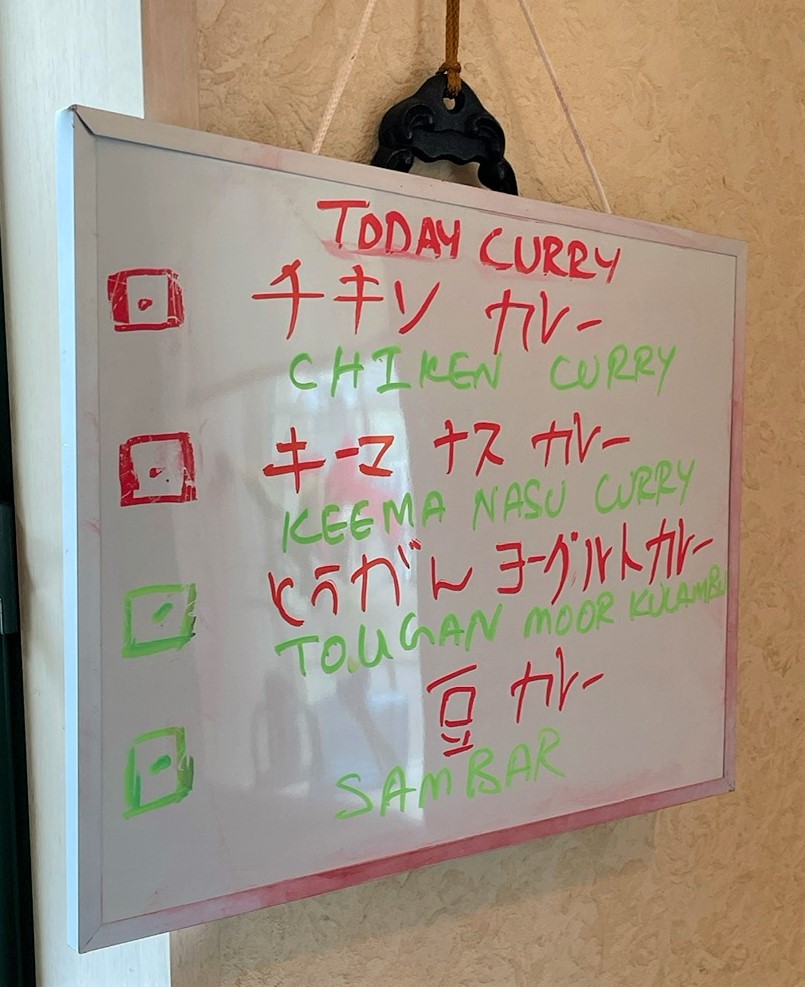 TODAY CURRY
チキン カレー
CHIKEN CURRY
キーマ ナス カレー
KEEMA NASU CURRY
とうがん ヨーグルトカレー
TOUGAN MOOR KULAMBU
豆 カレー
SAMBAR